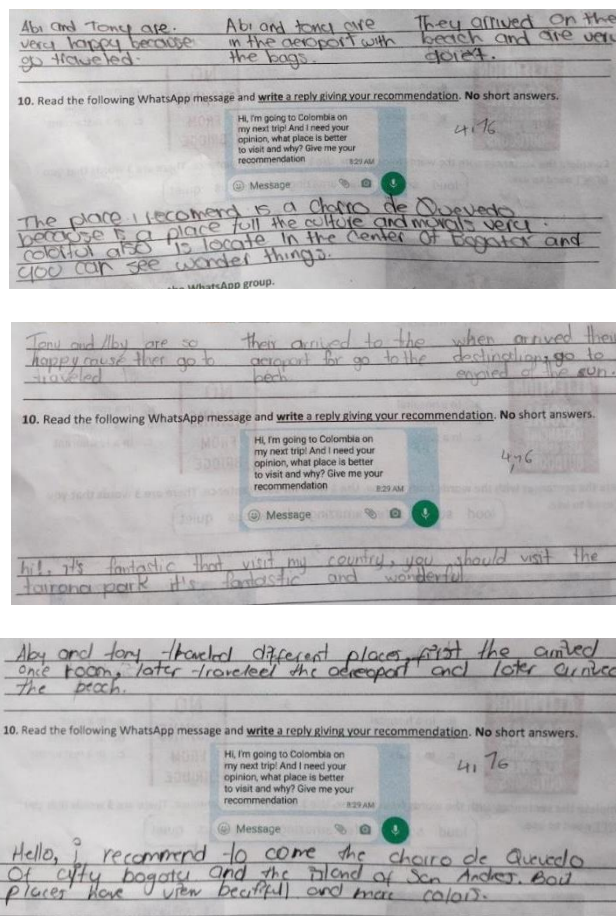 Abi and Tony are.
very happy because
go traveled.
Abi and tony are
in the aeroport with
the bags.
They arrived on the
beach and are very
qoiet.
10. Read the following WhatsApp message and write a reply giving your recommendation. No short answers.
Hi, I'm going to Colombia on
my next trip! And I need your
opinion, what place is better
to visit and why? Give me your
recommendation
8:29 AM
Message
The place i recomend is a Chorro de Quevedo
because is a place full the culture and murals very
colorful also is locate In the Center Of Bogota and
you can see wonder things.
WhatsApp group.
Tony and Aby are so
happy cause ther go to
traveled
their arrived to the
aeroport for go to the
bech
when arrived they
destination, go to
enjoied of the sun.
10. Read the following WhatsApp message and write a reply giving your recommendation. No short answers.
Hi, I'm going to Colombia on
my next trip! And I need your
opinion, what place is better
to visit and why? Give me your
recommendation
8:29 AM
Message
hi!, it's fantastic that visit my country, you should visit the
tairona park it's fantastic and wonderful
Aby and tony traveled different places, first the arrived
once room, later traveled the aereoport and later arrived
the beach.
10. Read the following WhatsApp message and write a reply giving your recommendation. No short answers.
Hi, I'm going to Colombia on
my next trip! And I need your
opinion, what place is better
to visit and why? Give me your
recommendation
8:29 AM
Message
Hello, i recommend to come the chorro de Quevedo
Of cyty bogota and the island of San Andres. Boit
places have view beatifull and more colors.